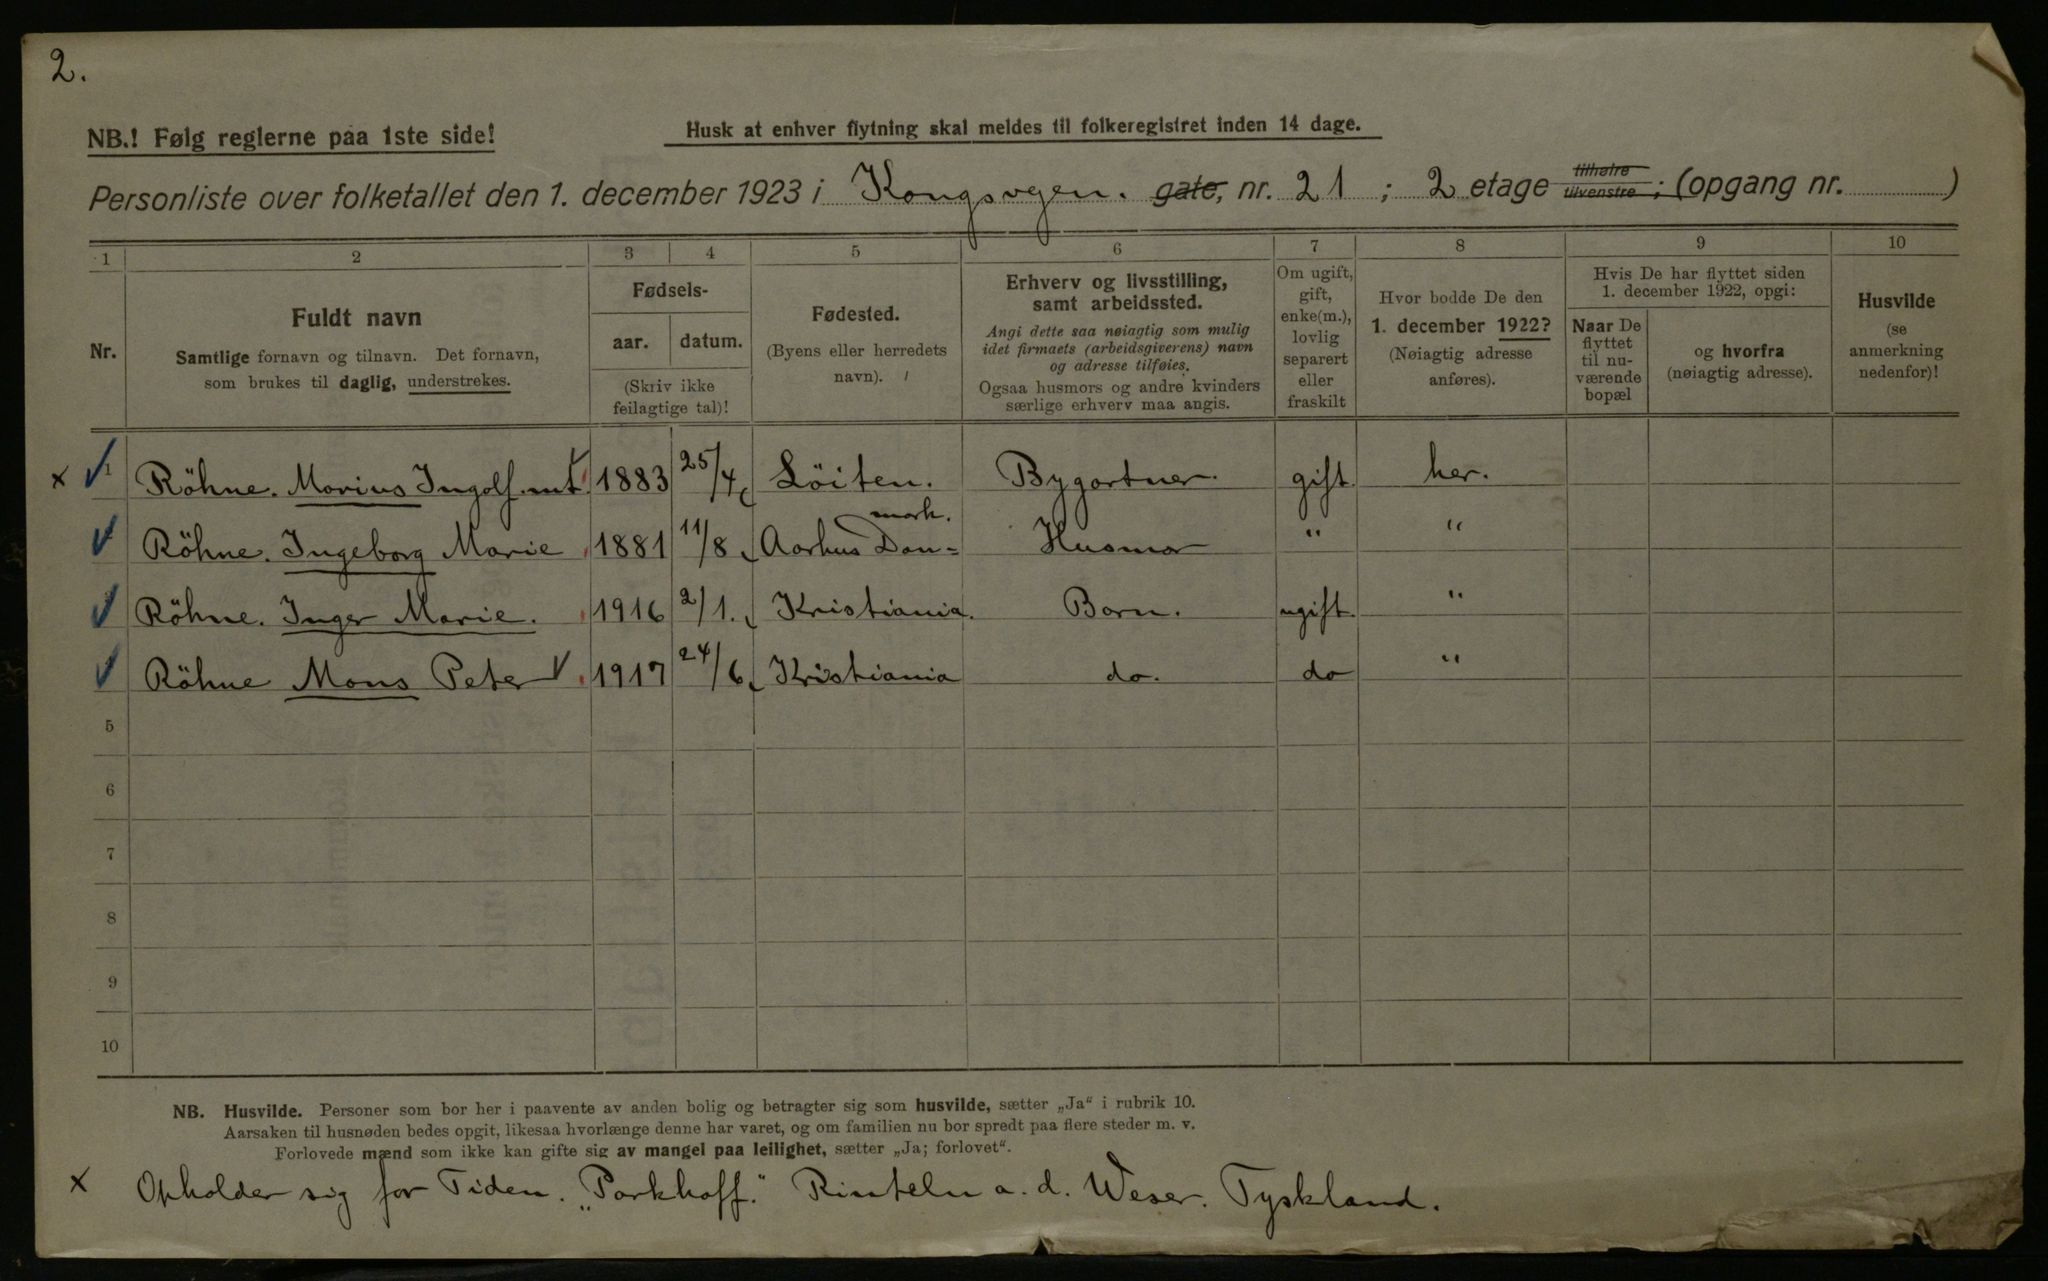 2.
NB.! Følg reglerne paa 1ste side!
Husk at enhver flytning skal meldes til folkeregistret inden 14 dage.
Personliste over folketallet den 1. december 1923 i Kongsvejen. gate, nr. 21 ; 2 etage tilhøire tilvenstre ; (opgang nr. )
1 2 3 4 5 6 7 8 9 10
Nr.
Fuldt navn
Samtlige fornavn og tilnavn. Det fornavn,
som brukes til daglig, understrekes.
Fødsels-
aar. datum.
(Skriv ikke
feilagtige tal)!
Fødested.
(Byens eller herredets
navn).
Erhverv og livsstilling,
samt arbeidssted.
Angi dette saa nøiagtig som mulig
idet firmaets (arbeidsgiverens) navn
og adresse tilføies.
Ogsaa husmors og andre kvinders
særlige erhverv maa angis.
Om ugift,
gift,
enke(m.),
lovlig
separert
eller
fraskilt
Hvor bodde De den
1. december 1922?
(Nøiagtig adresse
anføres).
Hvis De har flyttet siden
1. december 1922, opgi:
Naar De
flyttet
til nu-
værende
bopæl
og hvorfra
(nøiagtig adresse).
Husvilde
(se
anmerkning
nedenfor)!
x 1 Röhne. Marius Ingolf. mt. 1883 25/4 Löiten. Bygartner. gift. her.
Röhne. Ingeborg Marie 1881 11/8 Aarhus Dan= mark. Husmor " "
Röhne. Inger Marie. 1916 2/1. Kristiania. Barn. ugift. "
Röhne Mons Peter 1917 24/6 Kristiania do. do "
5
6
7
8
9
10
NB. Husvilde. Personer som bor her i paavente av anden bolig og betragter sig som husvilde, sætter „Ja“ i rubrik 10.
Aarsaken til husnøden bedes opgit, likesaa hvorlænge denne har varet, og om familien nu bor spredt paa flere steder m. v.
Forlovede mænd som ikke kan gifte sig av mangel paa leilighet, sætter „Ja; forlovet“.
x Opholder sig for Tiden. „Parkhoff.“ Rinteln a. d. Weser. Tyskland.